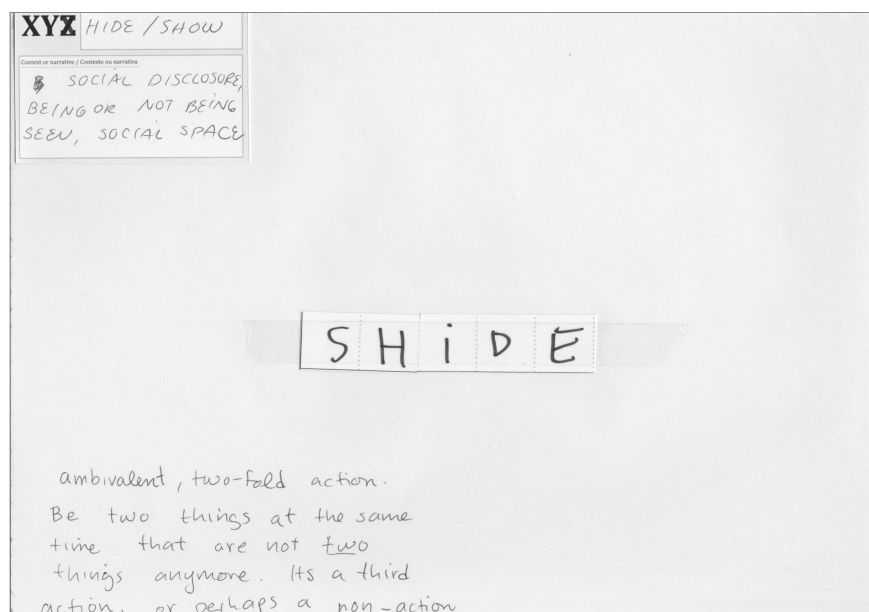 XYZ HIDE / SHOW
Context or narrative / Contexto ou narrativa
SOCIAL DISCLOSURE,
BEING OR NOT BEING
SEEN, SOCIAL SPACE
SHiDE
ambivalent, two-fold action.
Be two things at the same
time that are not two
things anymore. Its a third
action, or perhaps a non-action